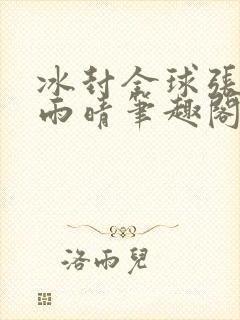 冰封全球張
雨晴筆趣閣
洛雨兒